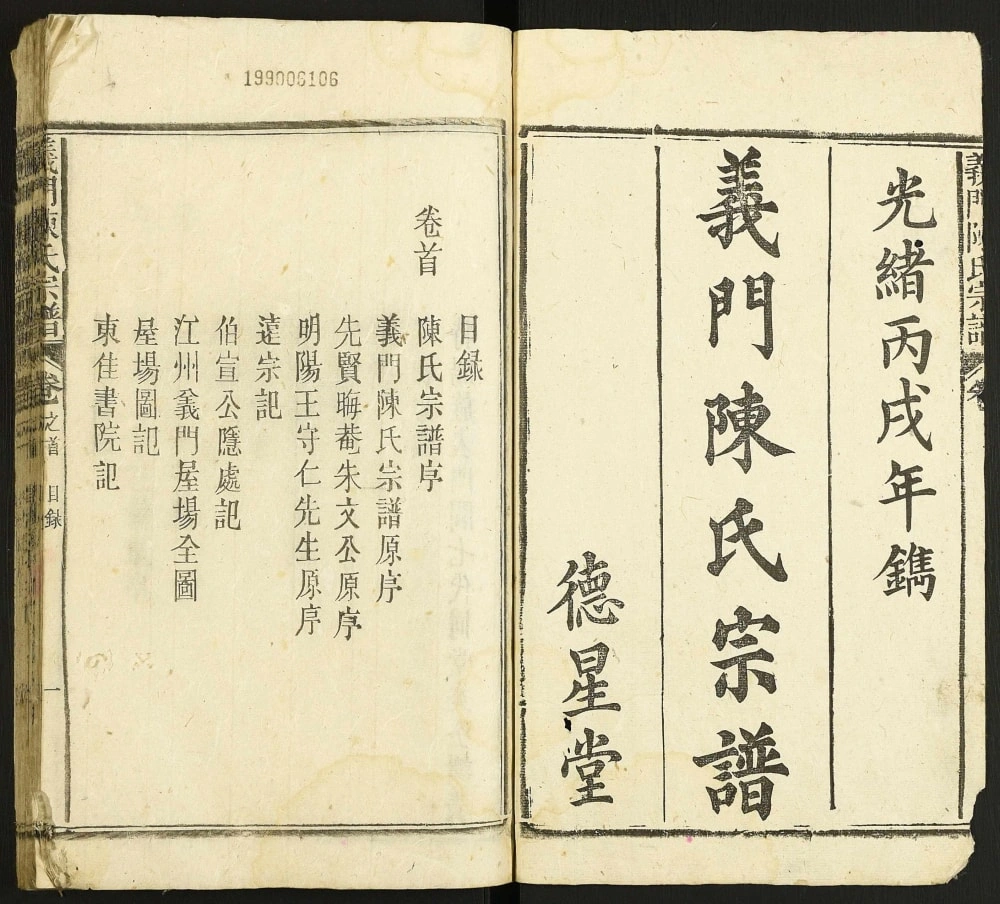 義門陳氏宗譜
光緒丙戌年鐫
義門陳氏宗譜
德星堂
199006106
目録
卷首 陳氏宗譜序
義門陳氏宗譜原序
先賢晦菴朱文公原序
明陽王守仁先生原序
遠宗記
伯宣公隱處記
江州義門屋場全圖
屋場圖記
東佳書院記
義門陳氏宗譜 卷之首 目録 一